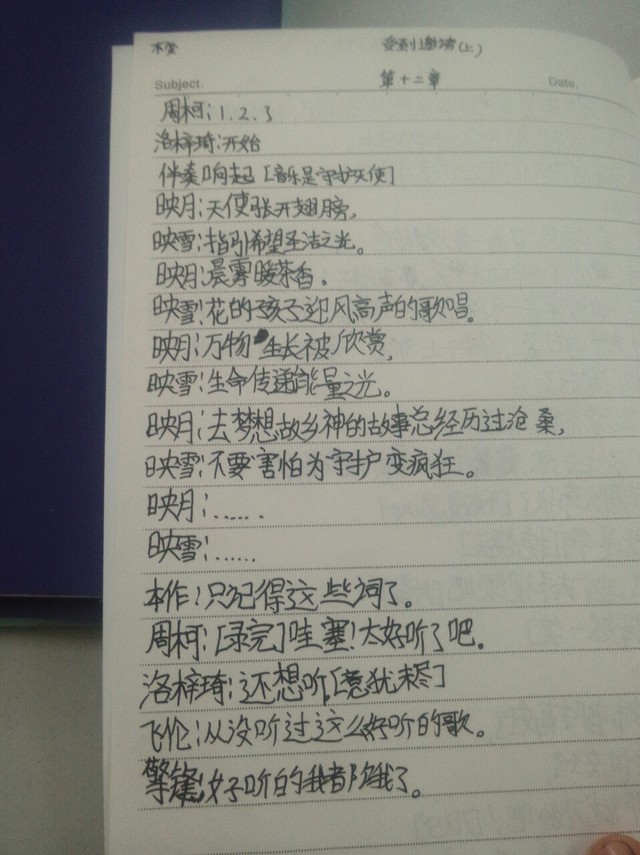 不堂 受到邀请(上)
Subject. 第十二章 Date.
周柯:1.2.3
洛梓琦:开始
伴奏响起[音乐是守护天使]
映月:天使张开翅膀,
映雪:指引希望圣洁之光。
映月:晨雾暖茶香。
映雪:花的孩子迎风高声的歌唱。
映月:万物生长被欣赏,
映雪:生命传递能量之光。
映月:去梦想故乡神的故事总经历过沧桑,
映雪:不要害怕为守护变疯狂。
映月:……
映雪:……
本作:只记得这些词了。
周柯:[录完]哇塞!太好听了吧。
洛梓琦:还想听,[意犹未尽]
飞伦:从没听过这么好听的歌。
擎锋:好听的我都饿了。